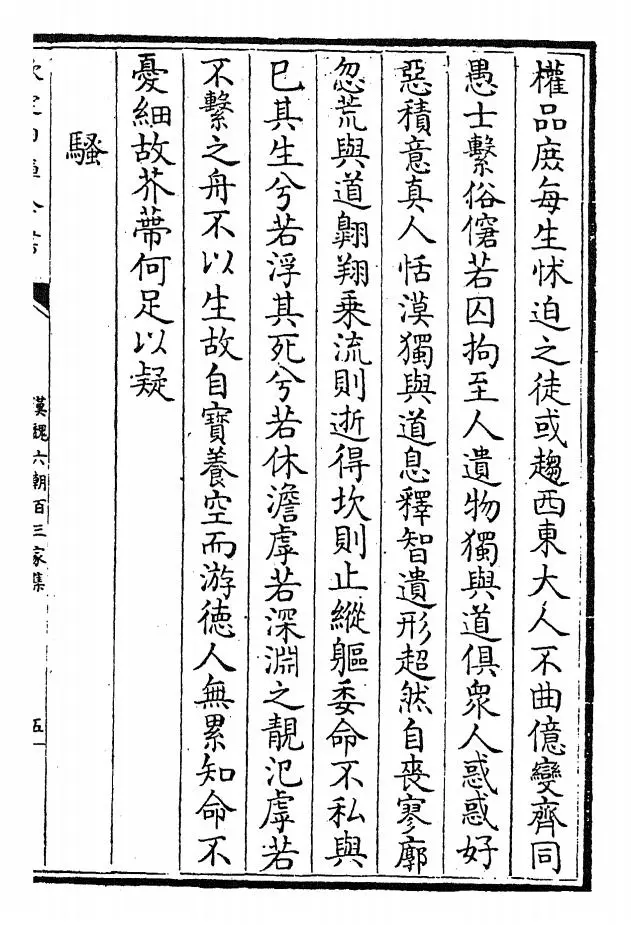 權品庶每生怵迫之徒或趨西東大人不曲億變齊同
愚士繫俗僒若囚拘至人遺物獨與道俱衆人惑惑好
惡積意真人恬漠獨與道息釋智遺形超然自喪寥廓
忽荒與道翺翔乗流則逝得坎則止縱軀委命不私與
已其生兮若浮其死兮若休澹虖若深淵之靚氾虖若
不繫之舟不以生故自寶養空而游徳人無累知命不
憂細故芥蔕何足以疑
騷
漢魏六朝百三家集
五